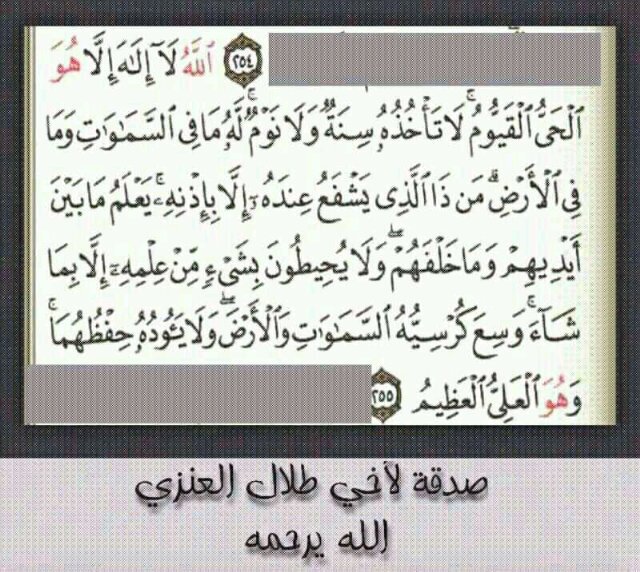 ٢٥٤ ٱللَّهُ لَآ إِلَٰهَ إِلَّا هُوَ
ٱلْحَىُّ ٱلْقَيُّومُ ۚ لَا تَأْخُذُهُۥ سِنَةٌ وَلَا نَوْمٌ ۚ لَّهُۥ مَا فِى ٱلسَّمَٰوَٰتِ وَمَا
فِى ٱلْأَرْضِ ۗ مَن ذَا ٱلَّذِى يَشْفَعُ عِندَهُۥٓ إِلَّا بِإِذْنِهِۦ ۚ يَعْلَمُ مَا بَيْنَ
أَيْدِيهِمْ وَمَا خَلْفَهُمْ ۖ وَلَا يُحِيطُونَ بِشَىْءٍ مِّنْ عِلْمِهِۦٓ إِلَّا بِمَا
شَآءَ ۚ وَسِعَ كُرْسِيُّهُ ٱلسَّمَٰوَٰتِ وَٱلْأَرْضَ ۖ وَلَا يَـُٔودُهُۥ حِفْظُهُمَا ۚ
وَهُوَ ٱلْعَلِىُّ ٱلْعَظِيمُ ٢٥٥
صدقة لأخي طلال العنزي
الله يرحمه